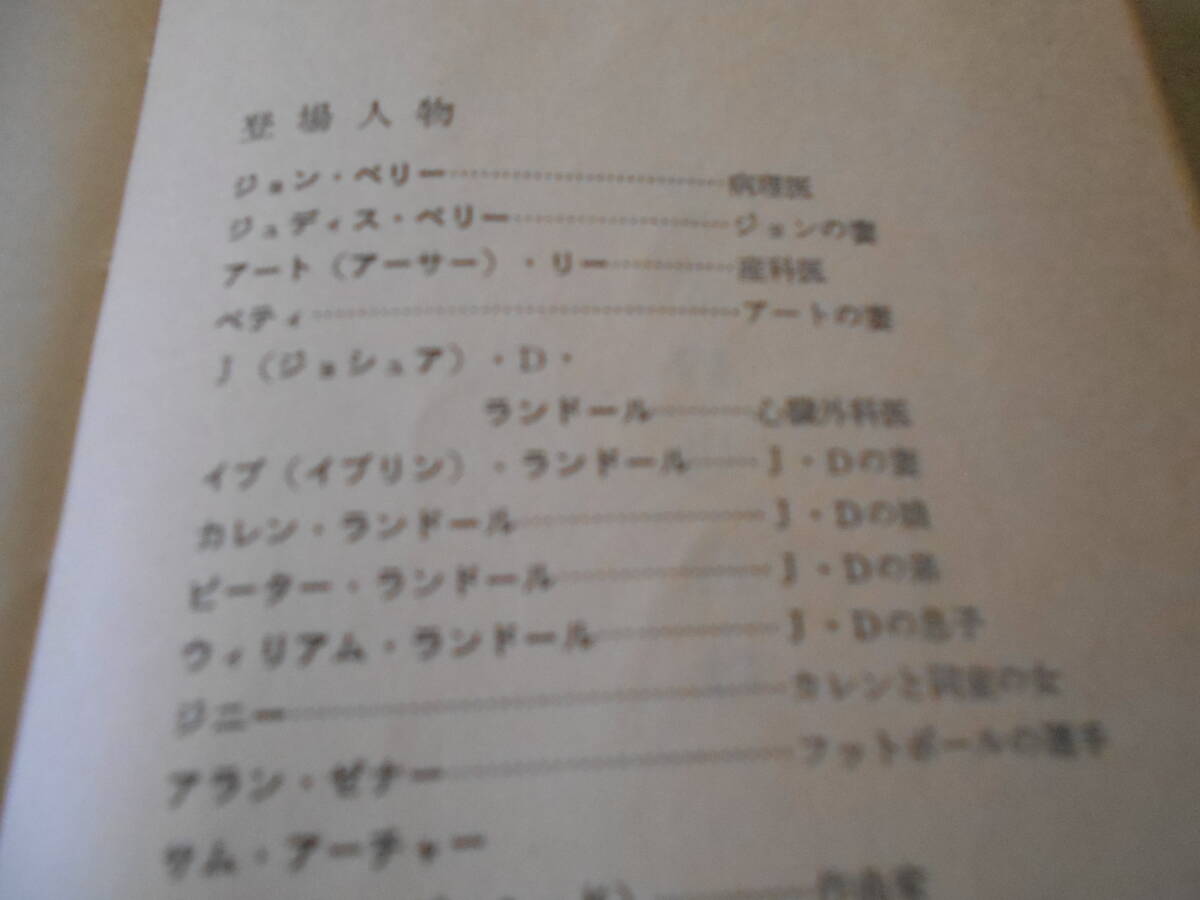 登場人物
ジョン・ベリー……………………病理医
ジュディス・ベリー………………ジョンの妻
アート（アーサー）・リー…………産科医
ベティ………………………………アートの妻
J（ジョシュア）・D・
ランドール………心臓外科医
イブ（イブリン）・ランドール……J・Dの妻
カレン・ランドール…………………J・Dの娘
ピーター・ランドール………………J・Dの弟
ウィリアム・ランドール……………J・Dの息子
ジニー………………………………カレンと同室の女
アラン・ゼナー………………………フットボールの選手
サム・アーチャー